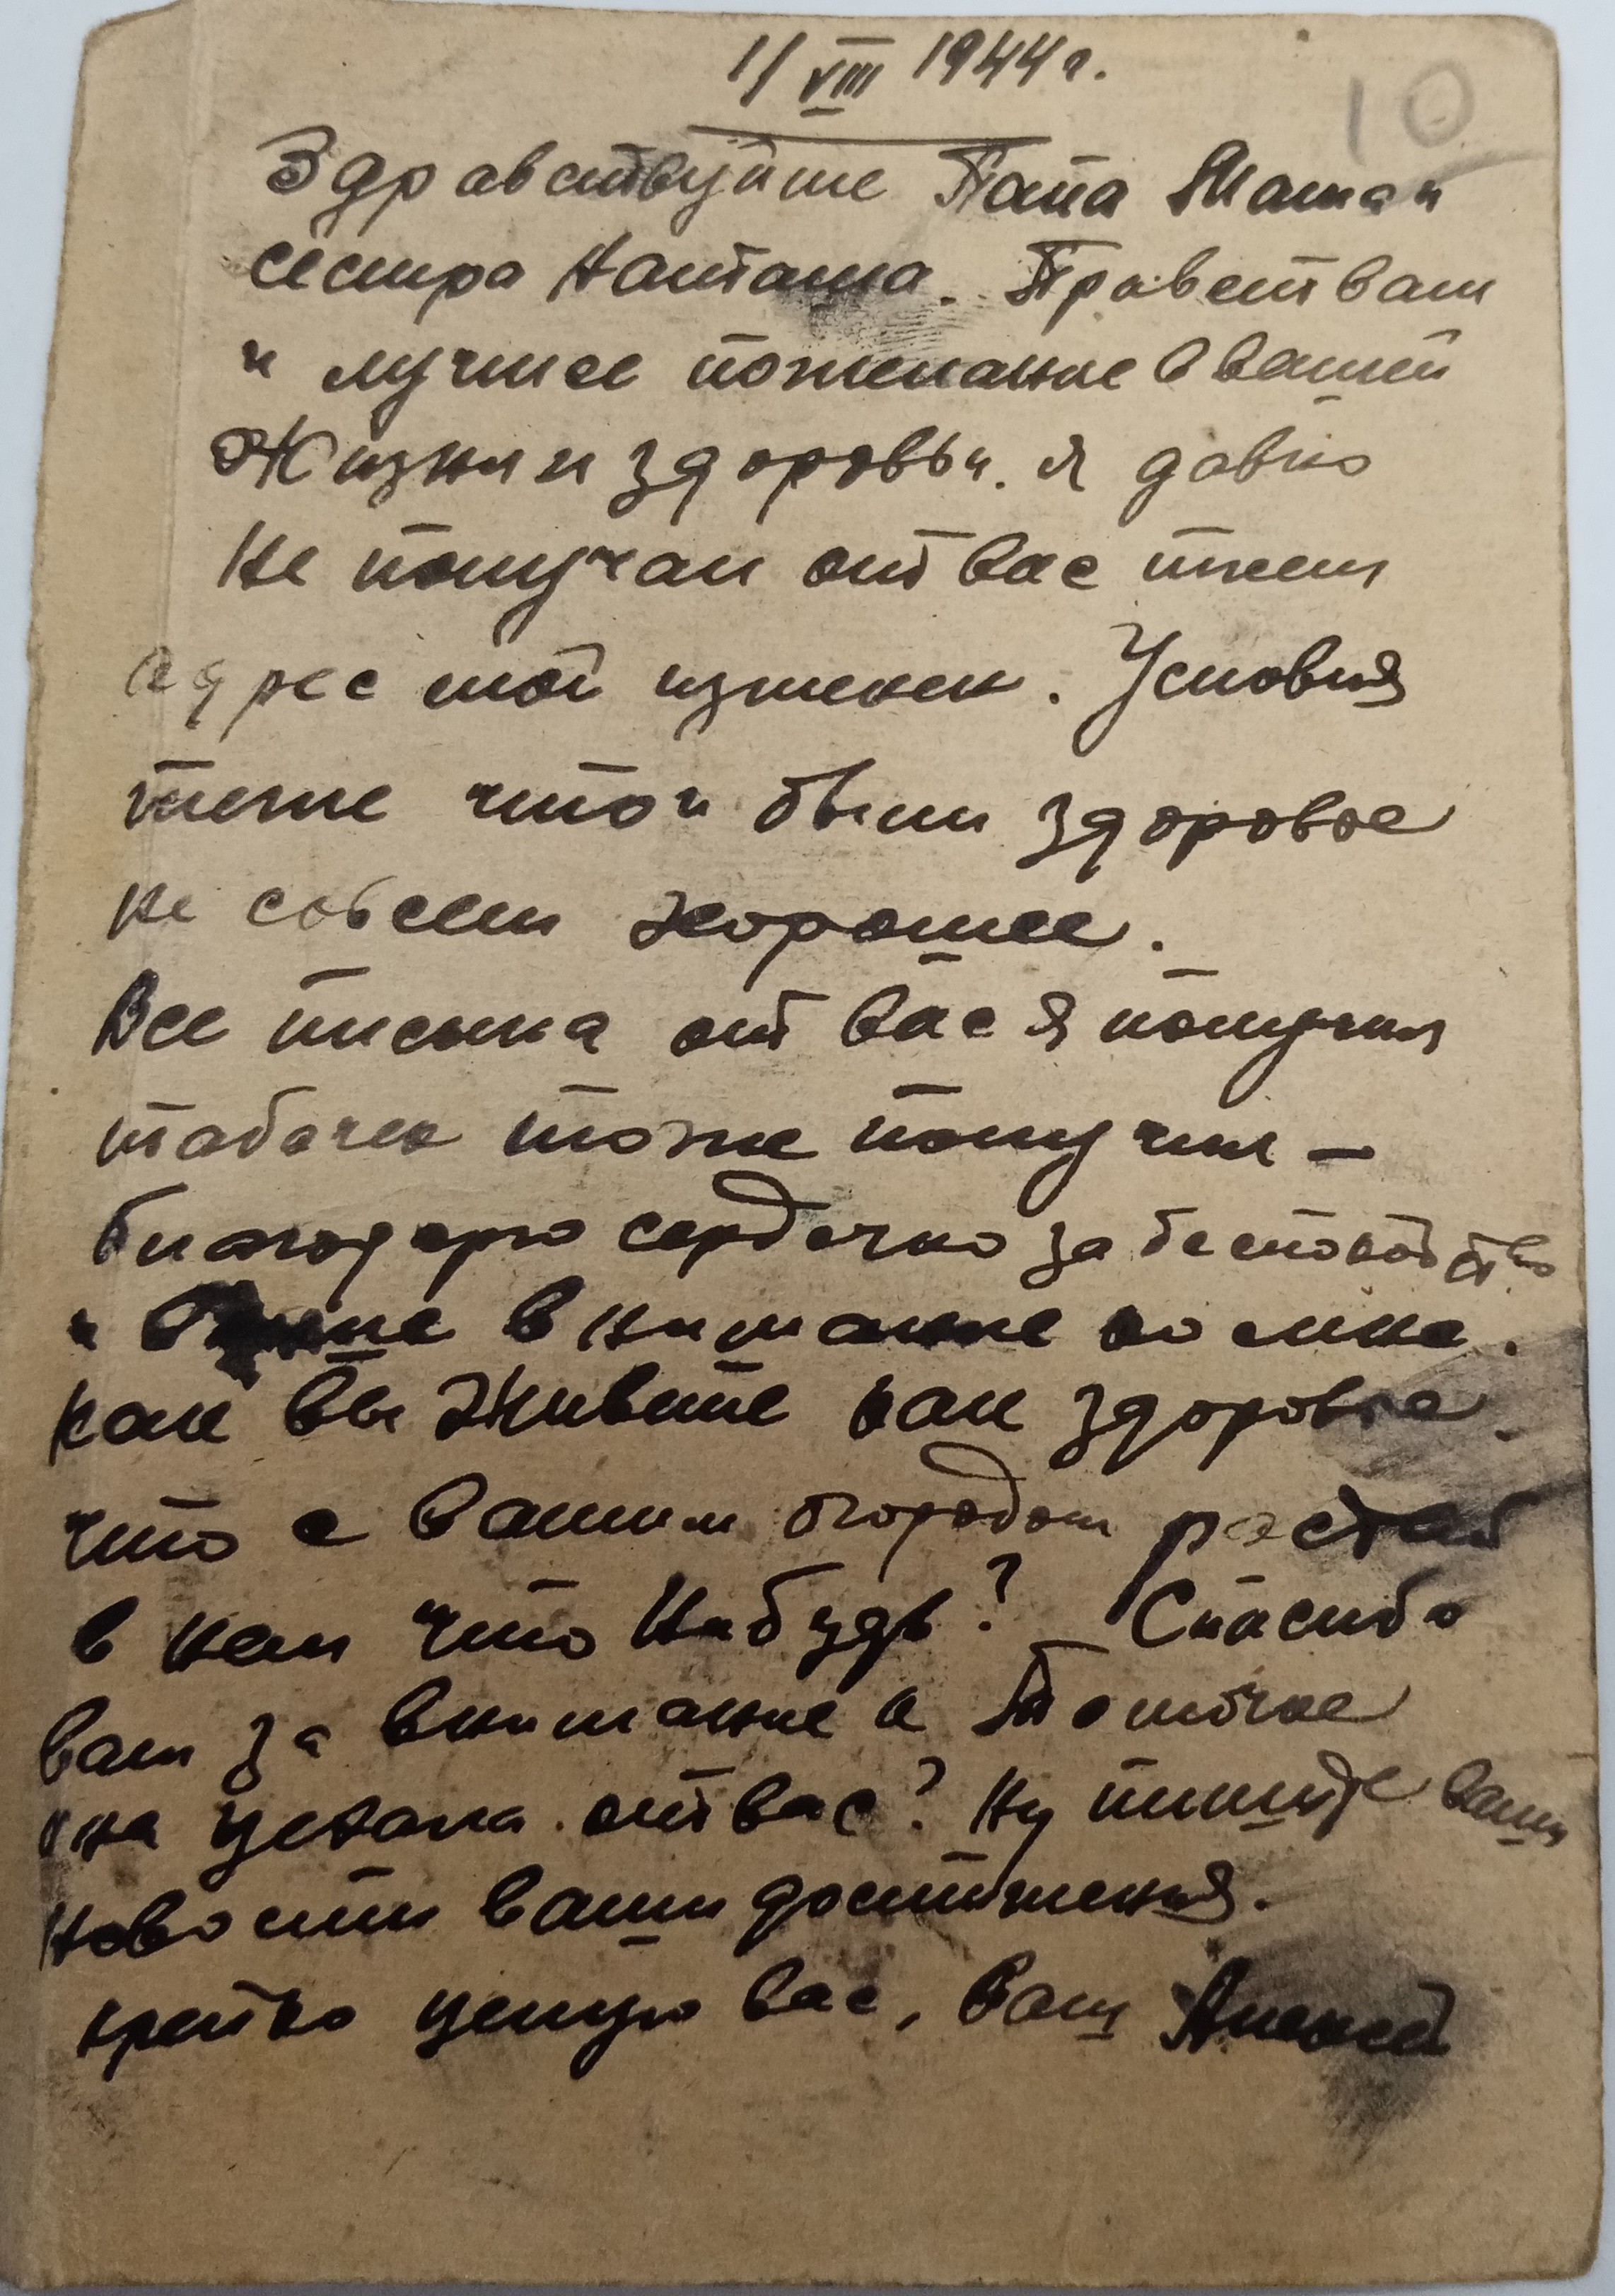 1/VIII 1944 г.
10
Здравствуйте Папа Мама и
сестра Наташа. Правет вам
и лучшее пожелание в вашей
Жизни и здоровьи. Я давно
не получал от вас писем
адрес мой изменен. Условия
теже что и были здоровье
не совсем хорошее.
Все письма от вас я получил
табачек тоже получил —
благодарю сердечно за беспокойство
и внимание ко мне.
как вы живете как здоровье.
что с вашим огородом растет
в нем что нибудь? Спасибо
вам за внимание к Томочке
она уехала от вас? Ну пишите ваши
новости ваши достижения.
крепко целую вас, Ваш Алексей